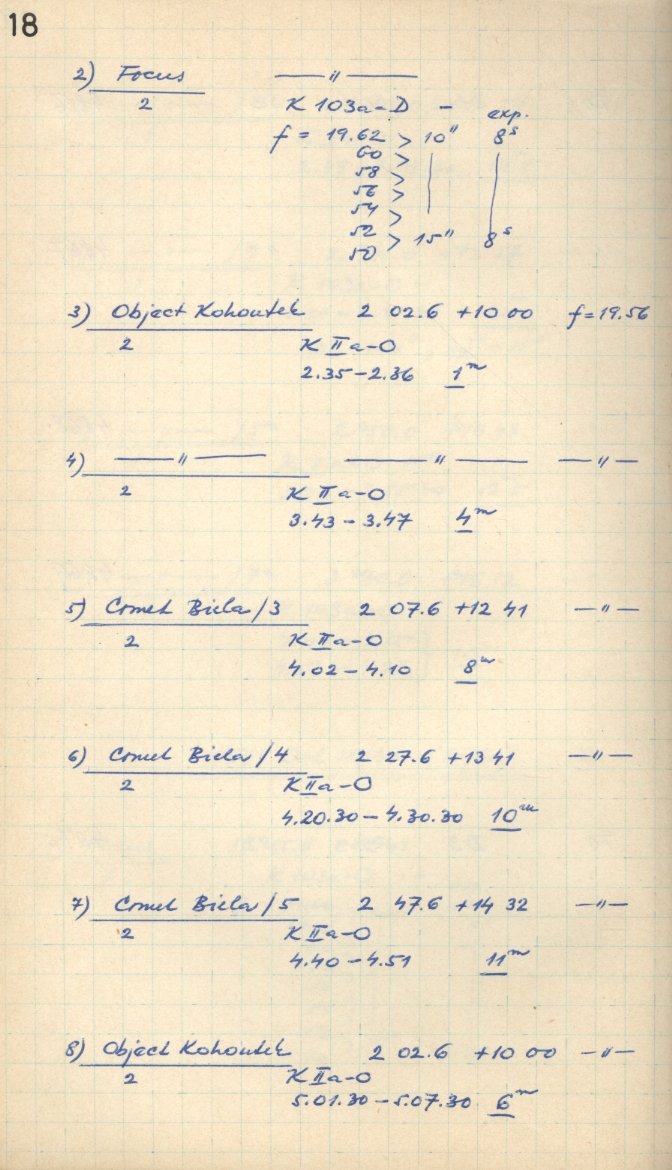 18
2) Focus —"—
2 K 103a-D - exp.
f = 19.62 > 10" 8s
60 >
58 >
56 >
54 >
52 > 15" 8s
50
3) Object Kohoutek 2 02.6 +10 00 f=19.56
2 K IIa-O
2.35-2.36 1m
4) —"— —"— —"—
2 K IIa-O
3.43-3.47 4m
5) Comet Biela/3 2 07.6 +12 41 —"—
2 K IIa-O
4.02-4.10 8m
6) Comet Biela/4 2 27.6 +13 41 —"—
2 K IIa-O
4.20.30-4.30.30 10m
7) Comet Biela/5 2 47.6 +14 32 —"—
2 K IIa-O
4.40-4.51 11m
8) Object Kohoutek 2 02.6 +10 00 —"—
2 K IIa-O
5.01.30-5.07.30 6m